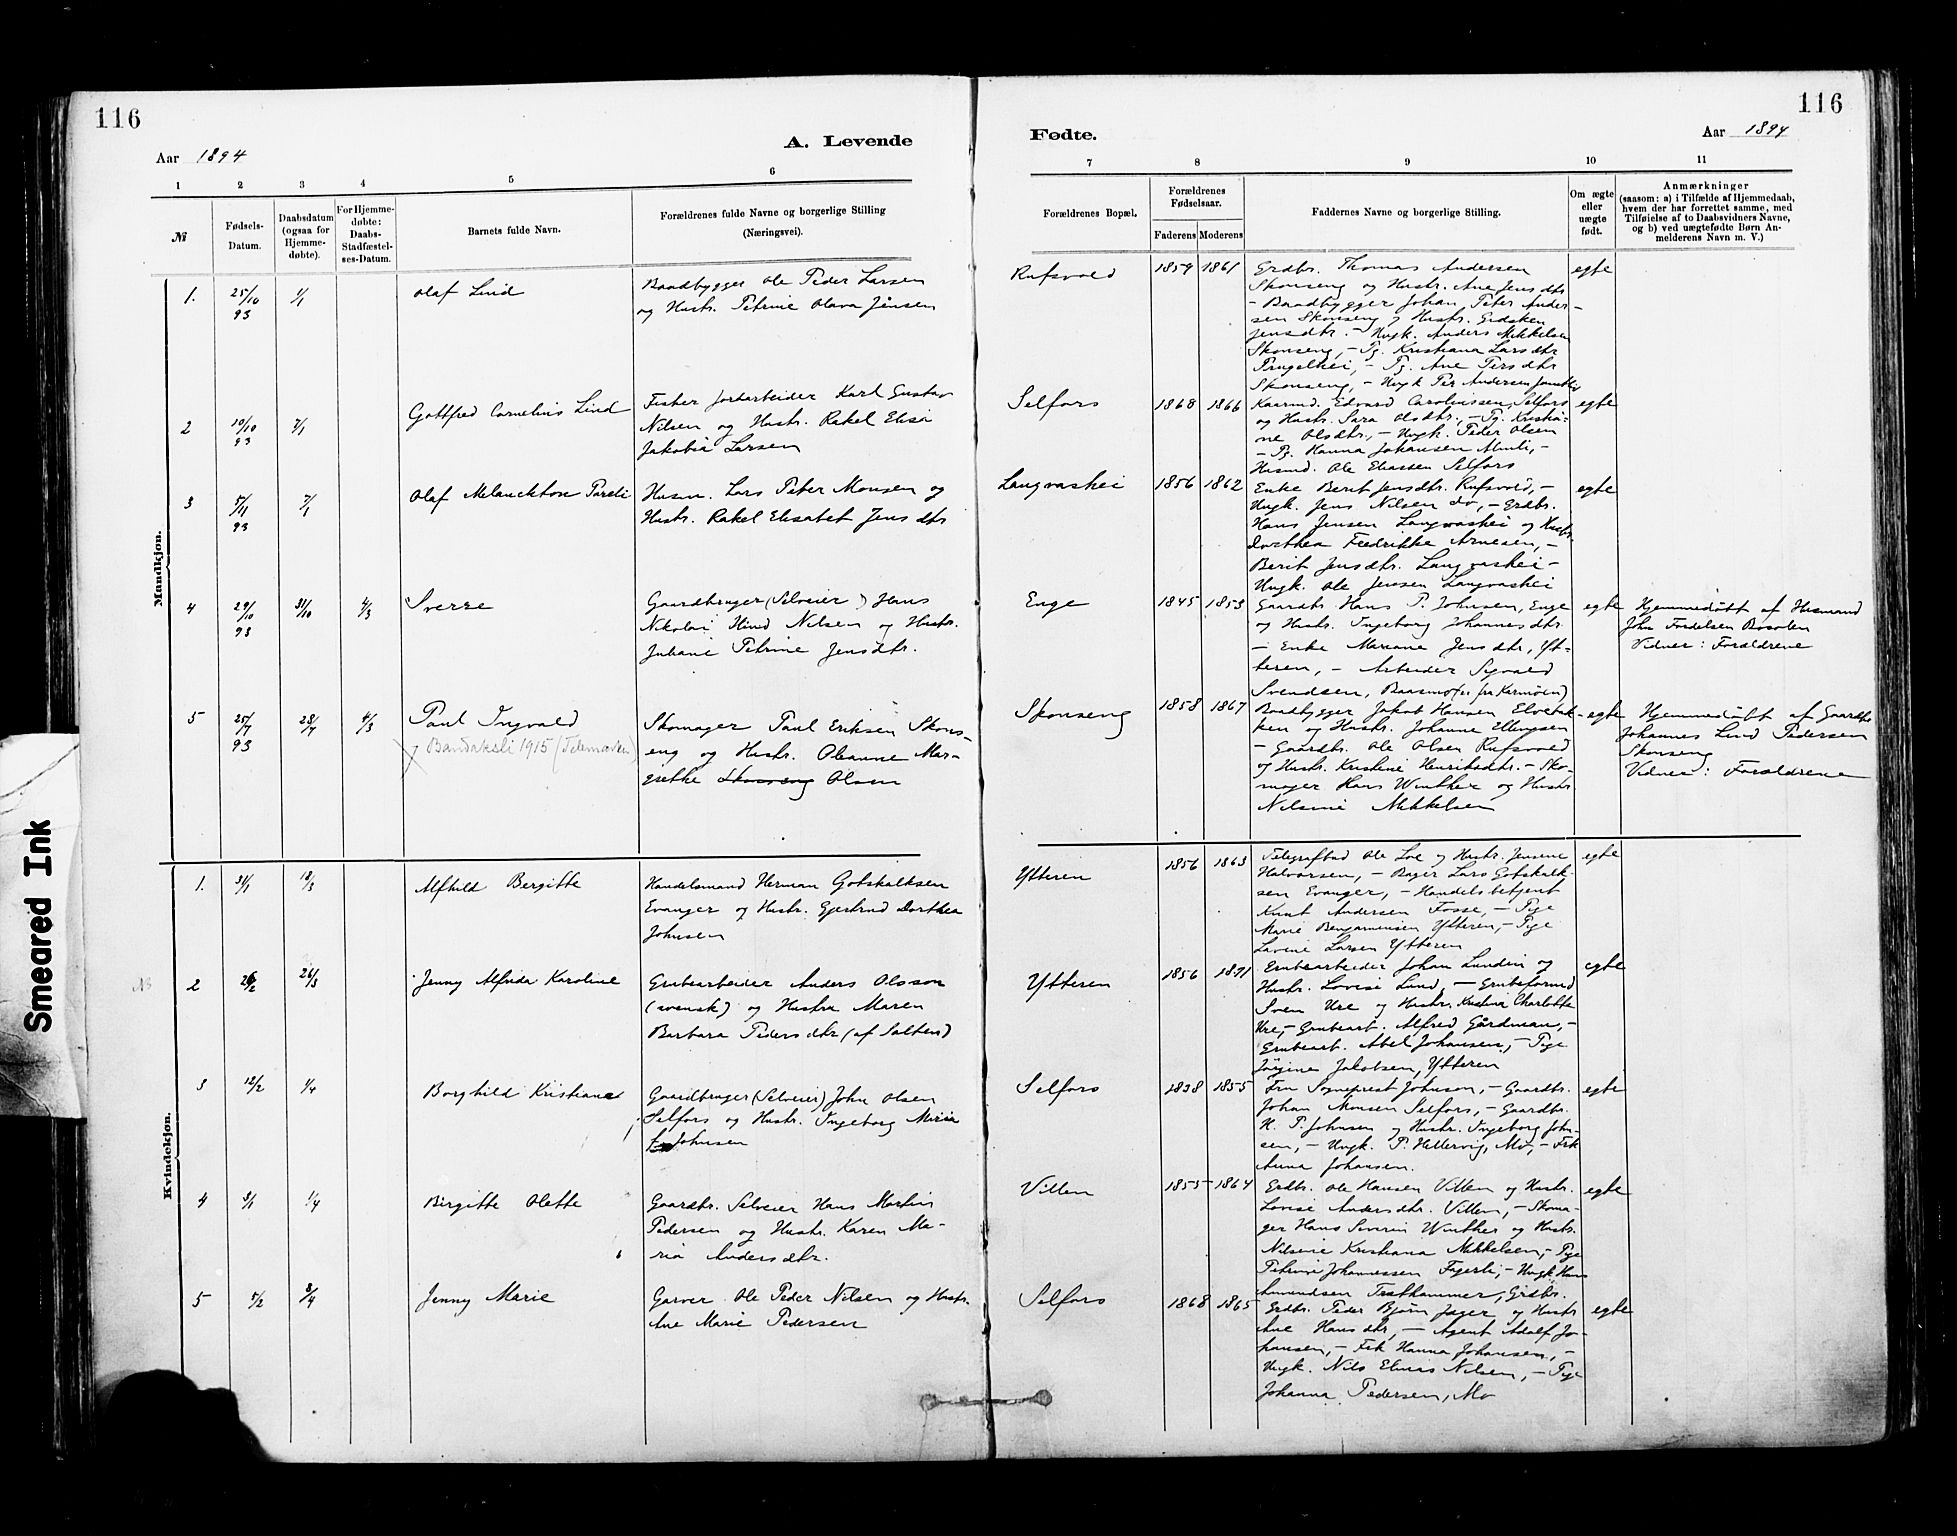 116
116
A. Levende
Fødte.
Aar 1894
Aar 1894
1
2
3
4
5
6
7
8
9
10
11
№
Fødsels-
Datum.
Daabsdatum
(ogsaa for
Hjemme-
døbte).
For Hjemme-
døbte:
Daabs-
Stadfæstel-
ses-Datum.
Barnets fulde Navn.
Forældrenes fulde Navne og borgerlige Stilling
(Næringsvei).
Forældrenes Bopæl.
Forældrenes
Fødselsaar.
Faderens
Moderens
Faddernes Navne og borgerlige Stilling.
Om ægte
eller
uægte
født.
Anmærkninger
(saasom: a) i Tilfælde af Hjemmedaab,
hvem der har forrettet samme, med
Tilføielse af to Daabsvidners Navne,
og b) ved uægtefødte Børn An-
melderens Navn m. V.)
Mandkjøn.
1.
25/10
93
1/1
Olaf Lind
Baadbygger Ole Peder Larsen
og Hustr. Petrine Olava Jensen
Rufsvold
1859
1861
Grdbr. Thomas Andersen
Skonseng og Hustr. Ane Jensdtr
- Baadbygger Johan Peter Ander-
sen Skonseng og Hustr. Gidsken
Jensdtr. - Ungk. Anders Mikkelsen
Skonseng, - Pg. Kristiana Larsdtr
- Pg. Ane Persdtr
Skonseng, - Ungk Per Andersen
egte
2
10/10
93
7/1
Gottfred Cornelius Lind
Fisker Jordarbeider Karl Gustav
Nilsen og Hustr. Rakel Elise
Jakobia Larsen
Selfors
1868
1866
Edvard Carolinssen, Selfors
og Hustr. Sara Olsdtr, - Pg. Kristia-
ne Olsdtr, - Ungk. Peder Olsen
- Pg. Hanna Johansen -
Husmd. Ole Eliassen Selfors
egte
3
5/11
93
7/1
Olaf Melanckton Pareli
Husm. Lars Peter Monsen og
Hustr. Rakel Elisabet Jensdtr
Langvashei
1856
1862
Enke Berit Jensdtr. Rufsvold, -
Ungk. Jens Nilsen do, - Grdbr.
Hans Jensen Langvashei og Hustr.
Dorthea Fredrikke Arnesen, -
Berit Jensdtr. Langvashei -
Ungk. Ole Jensen Langvashei
egte
4
29/10
93
31/10
4/3
Sverre
Gaardbruger (Selveier) Hans
Nikolai Hind Nilsen og Hustr.
Juliane Petrine Jensdtr.
Enge
1845
1853
Gaardbr. Hans P. Johnsen, Enge
og Hustr. Ingeborg Johannesdtr
- Enke Mariane Jensdtr, Yt-
teren, - Arbeider Sigvald
Svendsen, Baasmo (fra Karmøen)
egte
Hjemmedøbt af Husmand
John Fordelsen
Vidner: Forældrene
5
25/7
93
28/7
4/3
Paul Ingvald
Bandaksli 1915 (Telemarken)
Skomager Paul Eriksen Skons-
eng og Hustr. Oleanne Mar-
grethe Skonseng Olsen
Skonseng
1858
1867
Baadbygger Jakob Hansen Elvebak-
ken og Hustr. Johanne Ellingsen
- Gaardbr. Ole Olsen Rufsvold
og Hustr. Kristine Henriksdtr. - Sko-
mager Hans Winther og Hustr
Nilsine Mikkelsen
egte
Hjemmedøbt af Gaardbr.
Johannes Lind Pedersen
Skonseng
Vidner: Forældrene
Kvindekjøn.
1.
31/1
18/3
Alfhild Bergitte
Handelsmand Herman Gotskalksen
Evanger og Hustr. Gjertrud Dorthea
Johnsen
Ytteren
1856
1863
Telegrafbud Ole Loe og Hustr. Jensine
Halvorsen, - Bager Lars Gotskalk-
sen Evanger, - Handelsbetjent
Knut Andersen Fosse, - Pige
Marie Benjaminsen Ytteren, - Pige
Lavine Larsen Ytteren
egte
2
26/2
26/3
Jenny Alfrida Karoline
Grubearbeider Anders Olsson
(svensk) og Hustru Maren
Barbara Pedersdtr (af Salten)
Ytteren
1856
1871
Grubearbeider Johan Lundin og
Hustr. Lovise Lund, - Grubeformd
Sven Ure og Hustr. Kristina Charlotte
Ure, - Grubearb. Alfred Gårdman, -
Grubearb. Abel Johansen, - Pige
Jørgine Jakobsen, Ytteren
egte
3
12/2
1/4
Borghild Kristiane
Gaardbruger (Selveier) John Olsen
Selfors og Hustr. Ingeborg Marie
Johnsen
Selfors
1838
1855
Fru Sogneprest Johnson, - Gaardbr.
Johan Monsen Selfors, - Gaardbr.
H. P. Johnsen og Hustr. Ingeborg John-
sen, - Ungk. P. Hellervig, Mo, - Frk
Anna Johansen.
egte
4
3/1
1/4
Birgitte Olette
Gaardbr. Selveier Hans Martin
Pedersen og Hustr. Karen Ma-
ria Andersdtr.
Villen
1855
1864
Grdbr. Ole Hansen Villen og Hustr.
Lovise Andersdtr. Villen, - Skoma-
ger Hans Severin Winther og Hustr.
Nilsine Kristiana Mikkelsen, - Pige
Petrine Johannessen Fagerli, - Ungk Hans
Amundsen Trosthammer, Grdbr.
egte
5
5/2
8/4
Jenny Marie
Garver Ole Peder Nilsen og Hustr.
Ane Marie Pedersen
Selfors
1868
1865
Grdbr. Peder Bjørn Jæger og Hustr
Ane Hansdtr, - Agent Adolf Jo-
hansen, - Frk Hanna Johansen, -
Ungk. Nils Elias Nilsen, - Pige
Johanna Pedersen, Mo
egte
Smeared Ink